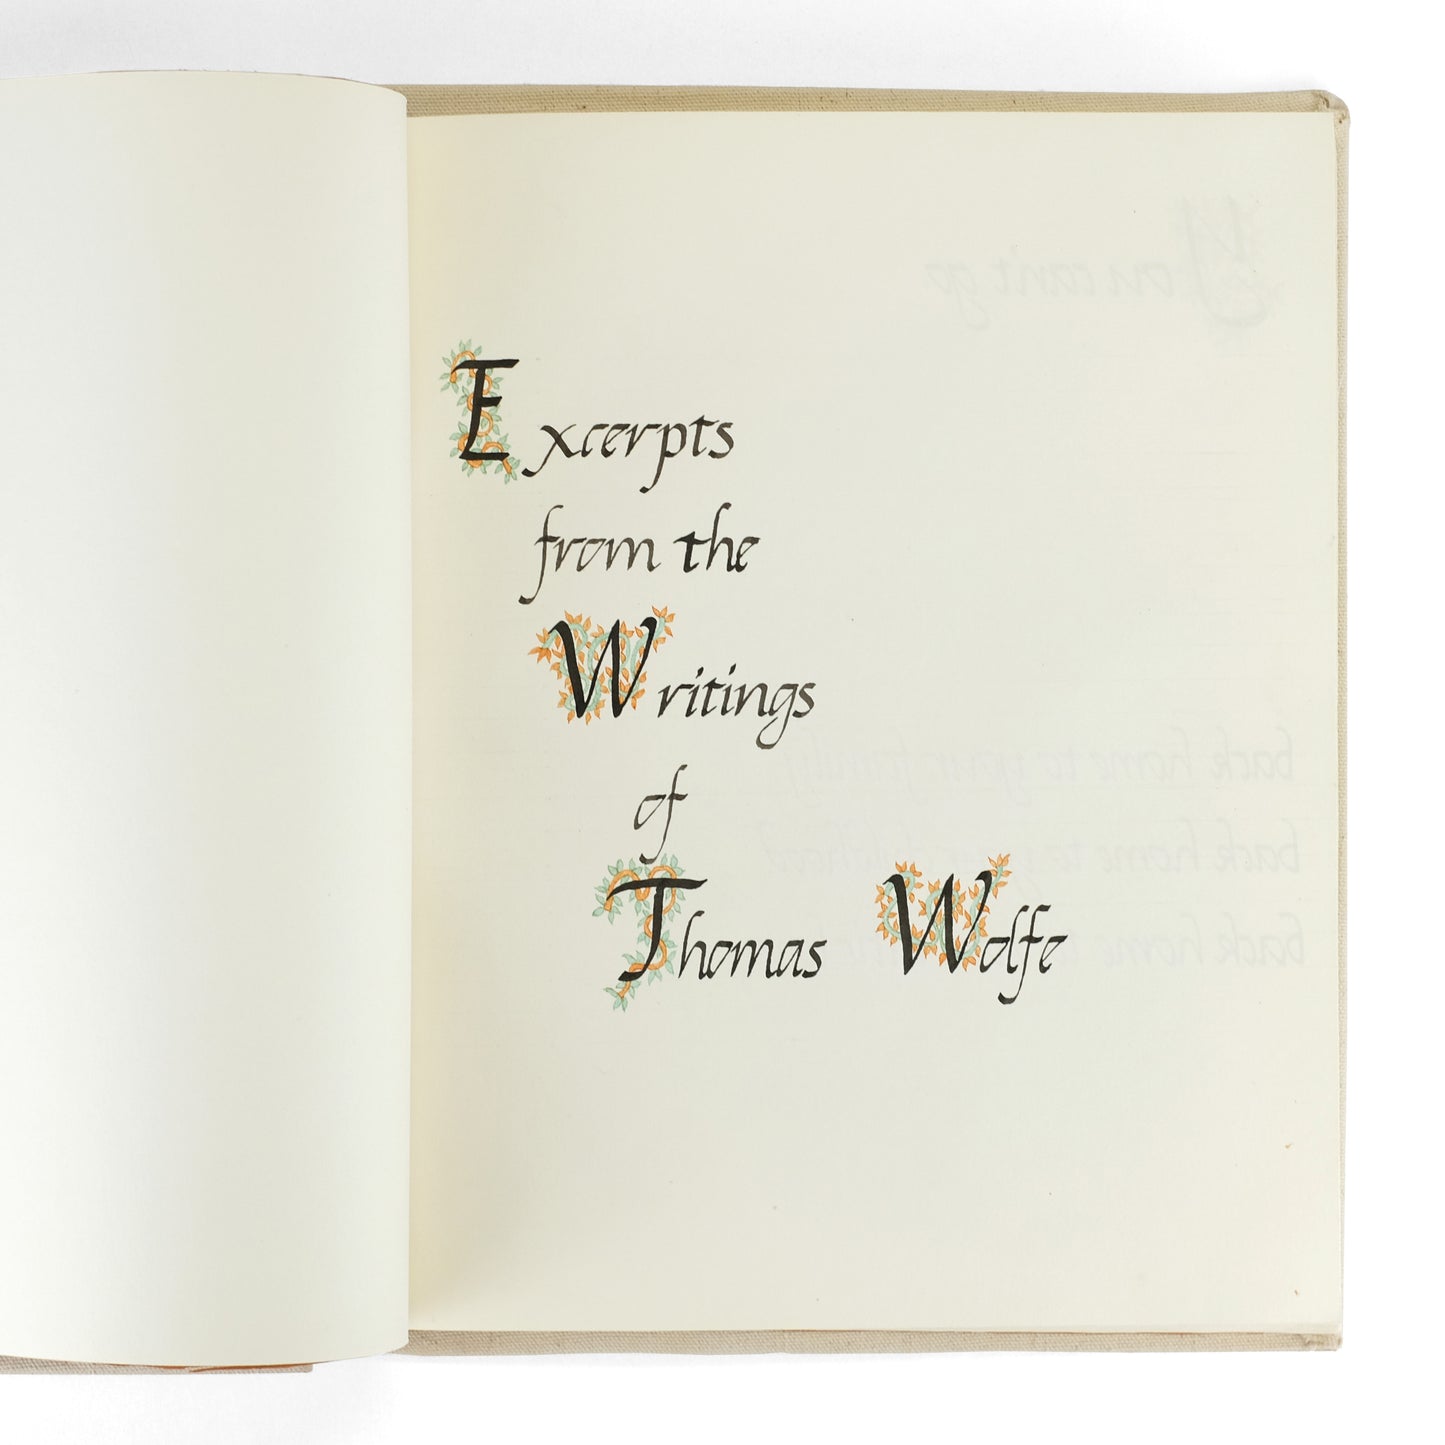 Excerpts
from the
Writings
of
Thomas Wolfe
You can't go
back home to your family
back home to your childhood
back home